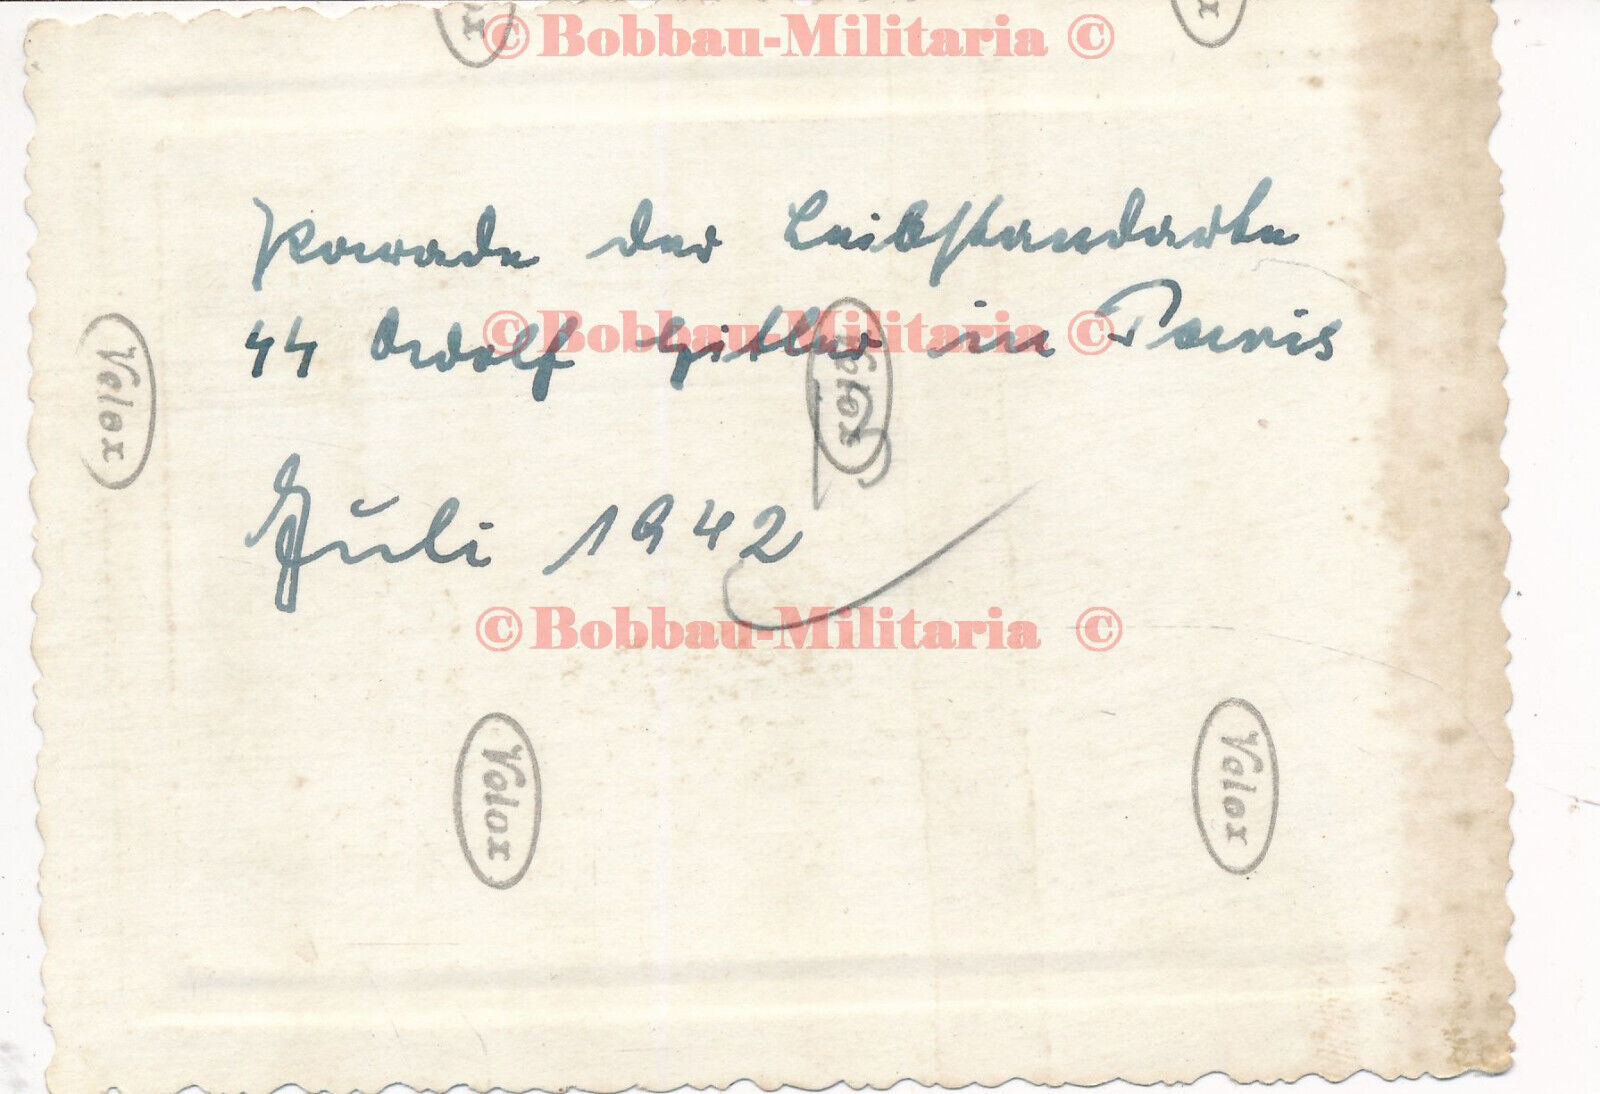 © Bobbau-Militaria ©
Velox
Parade der Leibstandarte
SS Adolf Hitler in Paris
© Bobbau-Militaria ©
Velox
Velox
Juli 1942
© Bobbau-Militaria ©
Velox
Velox